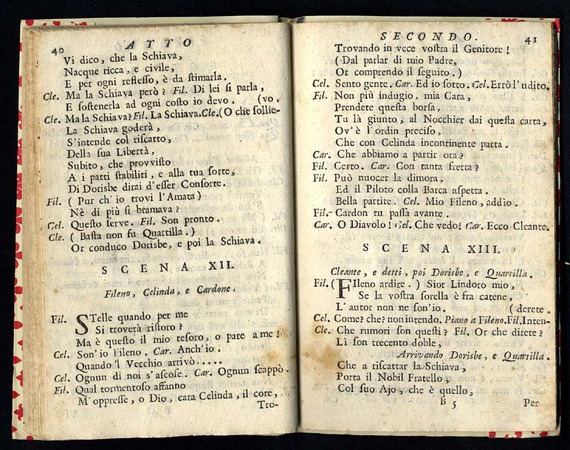 40
ATTO
Vi dico, che la Schiava,
Nacque ricca, e civile,
E per ogni reflesso, è da stimarla.
Cle. Ma la Schiava però? Fil. Di lei si parla,
E sostenerla ad ogni costo io devo. (vo.
Cle. Ma la Schiava? Fil. La Schiava. Cle. (O che sollie-
La Schiava goderà,
S'intende col riscatto,
Della sua Libertà,
Subito, che provvisto
A i patti stabiliti, e alla tua sorte,
Di Dorisbe dirai d'esser Consorte.
Fil. ( Pur ch'io trovi l'Amata )
Nè di più si bramava?
Cel. Questo serve. Fil. Son pronto.
Cle. ( Basta non fu Quartilla. )
Or conduco Dorisbe, e poi la Schiava.
SCENA XII.
Fileno, Celinda, e Cardone.
Fil. STelle quando per me
Si troverà ristoro?
Ma è questo il mio tesoro, o pate a me!
Cel. Son'io Fileno. Car. Anch'io.
Quando 'l Vecchio arrivò.....
Cel. Ognun di noi s'ascose. Car. Ognun scappò.
Fil. Qual tormentoso affanno
M'oppresse, o Dio, cara Celinda, il core,
Tro-
SECONDO.
41
Trovando in vece vostra il Genitore!
( Dal parlar di mio Padre,
Or comprendo il seguito. )
Cel. Sento gente. Car. Ed io sotto. Cel. Errò l'udito.
Fil. Non più indugio, mia Cara,
Prendete questa borsa,
Tu là giunto, al Nocchier dai questa carta,
Ov'è l'ordin preciso,
Che con Celinda incontinente parta.
Car. Che abbiamo a partir ora?
Fil. Certo. Car. Con tanta fretta?
Fil. Può nuocer la dimora,
Ed il Piloto colla Barca aspetta.
Bella partite. Cel. Mio Fileno, addio.
Fil. Cardon tu passa avante.
Car. O Diavolo! Cel. Che vedo! Car. Ecco Cleante.
SCENA XIII.
Cleante, e detti, poi Dorisbe, e Quartilla.
Fil. ( FIleno ardire. ) Sior Lindoro mio,
Se la vostra sorella è fra catene,
L'autor non ne son'io. ( derete.
Cel. Come? che? non intendo. Piano a Fileno. Fil. Inten-
Cle. Che rumori son questi? Fil. Or che direte?
Lì son trecento doble,
Arrivando Dorisbe, e Quartilla.
Che a riscattar la Schiava,
Porta il Nobil Fratello,
Col suo Ajo, che è quello,
B 5
Per